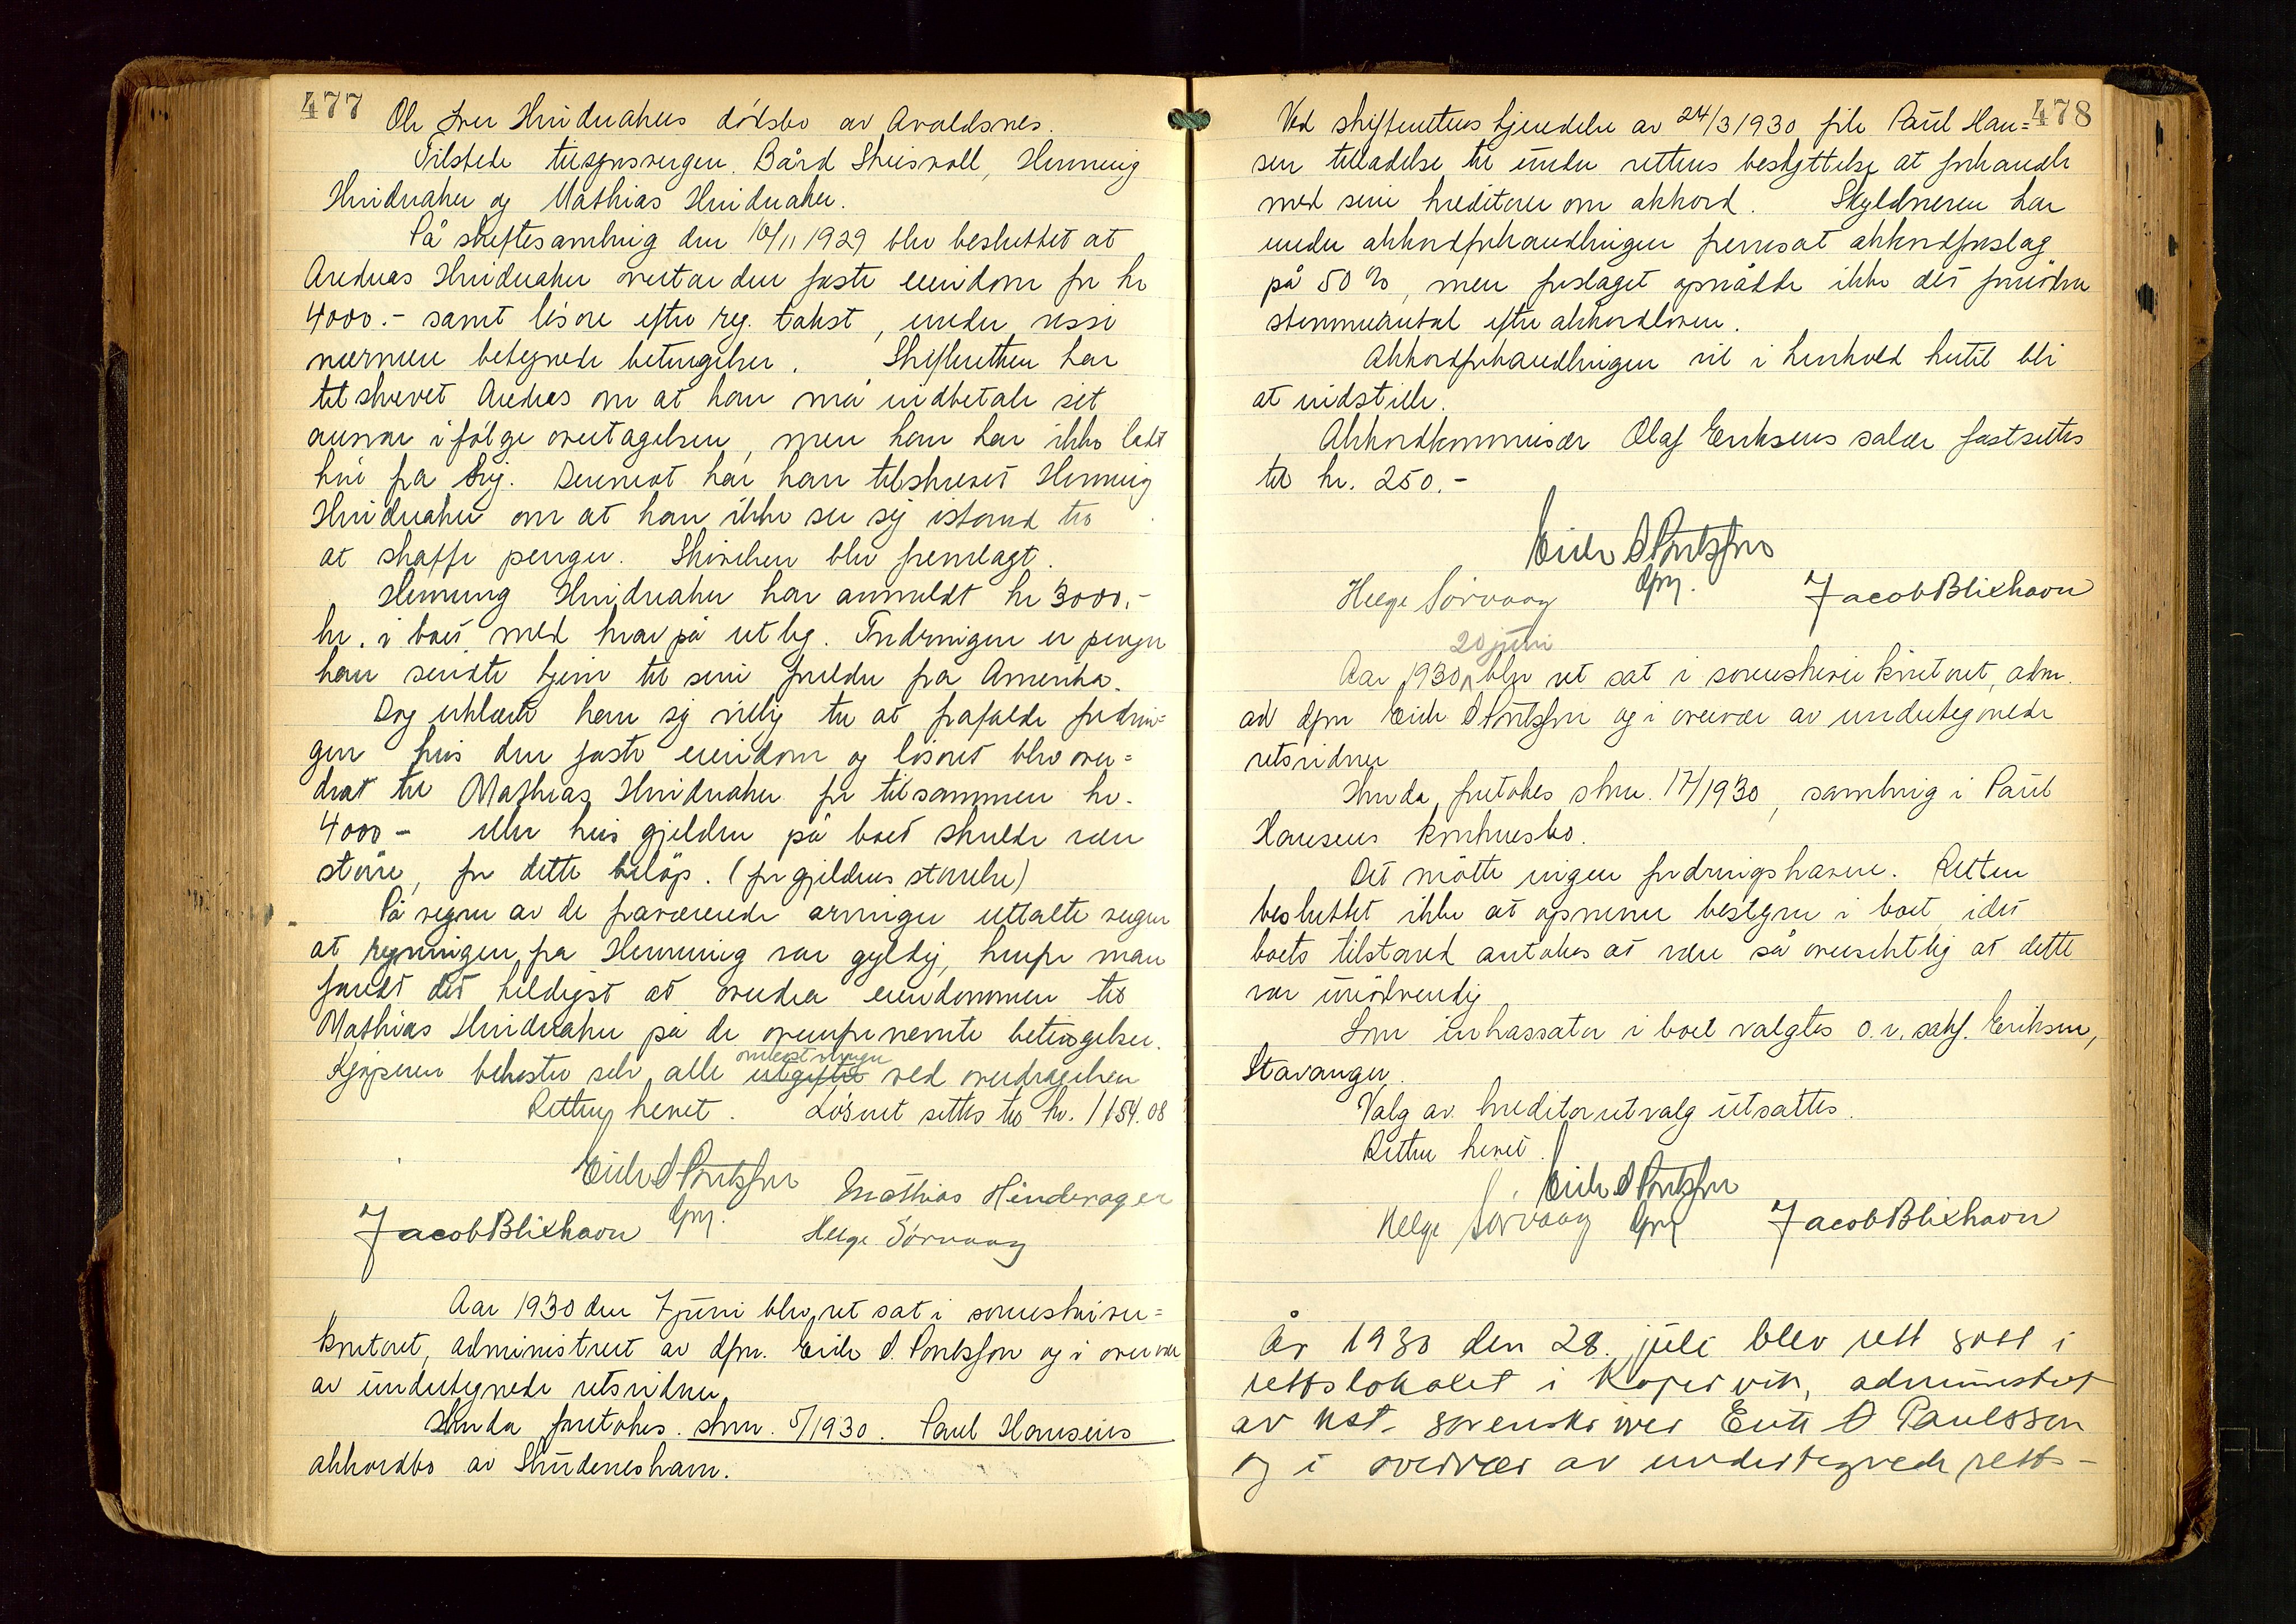 477
Ole Iver Hinderakers dödsbo av Avaldsnes.
Tilstede tilsynsvergen Bård Skeisvoll, Henning
Hinderaker og Mathias Hinderaker.
På skiftesamling den 16/11 1929 blev besluttet at
Andreas Hinderaker overtar den faste eiendom for kr
4000.- samt lösöre efter reg. takst, under visse
nærmere betegnede betingelser. Skifteretten har
tilskrevet Andreas om at han må indbetale sit
ansvar i fölge overtagelsen, men han har ikke latt
höre fra sig. Derimot har han tilskrevet Henning
Hinderaker om at han ikke ser sig istand til
at skaffe penger. Skrivelsen blev fremlagt.
Henning Hinderaker har anmeldt kr 3000.-
kr. i boet med krav på utlegg. Fordringen er penger
han sendte hjem til sine foreldre fra Amerika.
Dog erklærte han sig villig til at frafalde fordrin=
gen hvis den faste eiendom og lösöret blev over=
dratt til Mathias Hinderaker for tilsammen kr.
4000 - eller hvis gjelden på boet skulde være
större, for dette belöp. (for gjeldens störrelse)
På vegne av de fraværende arvinger uttalte vergen
at regningen fra Henning var gyldig, hvorfor man
fandt det heldigst at overdra eiendommen til
Mathias Hinderaker på de ovenfor nevnte betingelser.
omkostninger
Kjöperen bekoster selv alle utgifter ved overdragelsen
Retten hevet. Lösöret settes til kr. 1154.08
Eirik S Pontsson
Mathias Hinderager
Jacob Blikhavn
Helge Sörvaag
Aar 1930 den 7 juni blev ret sat i sorenskriver=
kontoret, administrert av dfm. Eirik S. Pontsson og i overvær
av undertegnede retsvidner.
Herunder foretokes skm. 5/1930. Paul Hansens
akkordbo av Skudeneshavn.
478
Ved skifterettens kjendelse av 24/3 1930 fik Paul Han=
sen tilladelse til under rettens beskyttelse at forhandle
med sine kreditorer om akkord. Skyldneren har
under akkordforhandlingen fremsat akkordforslag
på 50 %, men forslaget opnådde ikke det fornödne
stemmeantal efter akkordloven.
Akkordforhandlingen vil i henhold hertil bli
at indstille.
Akkordkommissær Olaf Eriksens salær fastsettes
til kr. 250.-
Eirik S Pontsson
Helge Sörvaag
Jacob Blikhavn
20 juni
Aar 1930 blev ret sat i sorenskriverkontoret, adm.
av dfm Eirik S Pontsson og i overvær av undertegnede
retsvidner
Herunder foretokes skm. 17/1930, samling i Paul
Hansens konkursbo.
Det mötte ingen fordringshavere. Retten
besluttet ikke at opnevne bestyrer i boet, idet
boets tilstand antokes at være så oversiktlig at dette
var unödvendig
Som inkassator i boet valgtes o.r. sakf. Eriksen,
Stavanger.
Valg av kreditorutvalg utsattes.
Retten hevet.
Eirik S Pontsson
Helge Sörvaag
Jacob Blikhavn
År 1930 den 28. juli blev rett satt i
rettslokalet i Kopervik, administrert
av kst. sorenskriver Eirik S Paulsson
og i overvær av undertegnede retts-